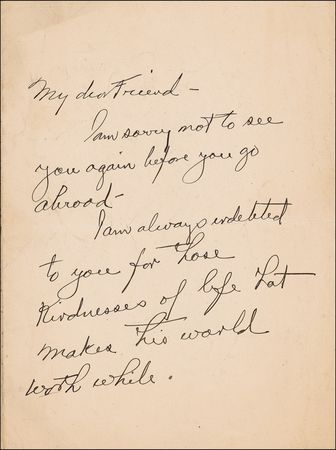 My dear Friend -
I am sorry not to see
you again before you go
abroad -
I am always indebted
to you for those
kindnesses of life that
makes this world
worth while.